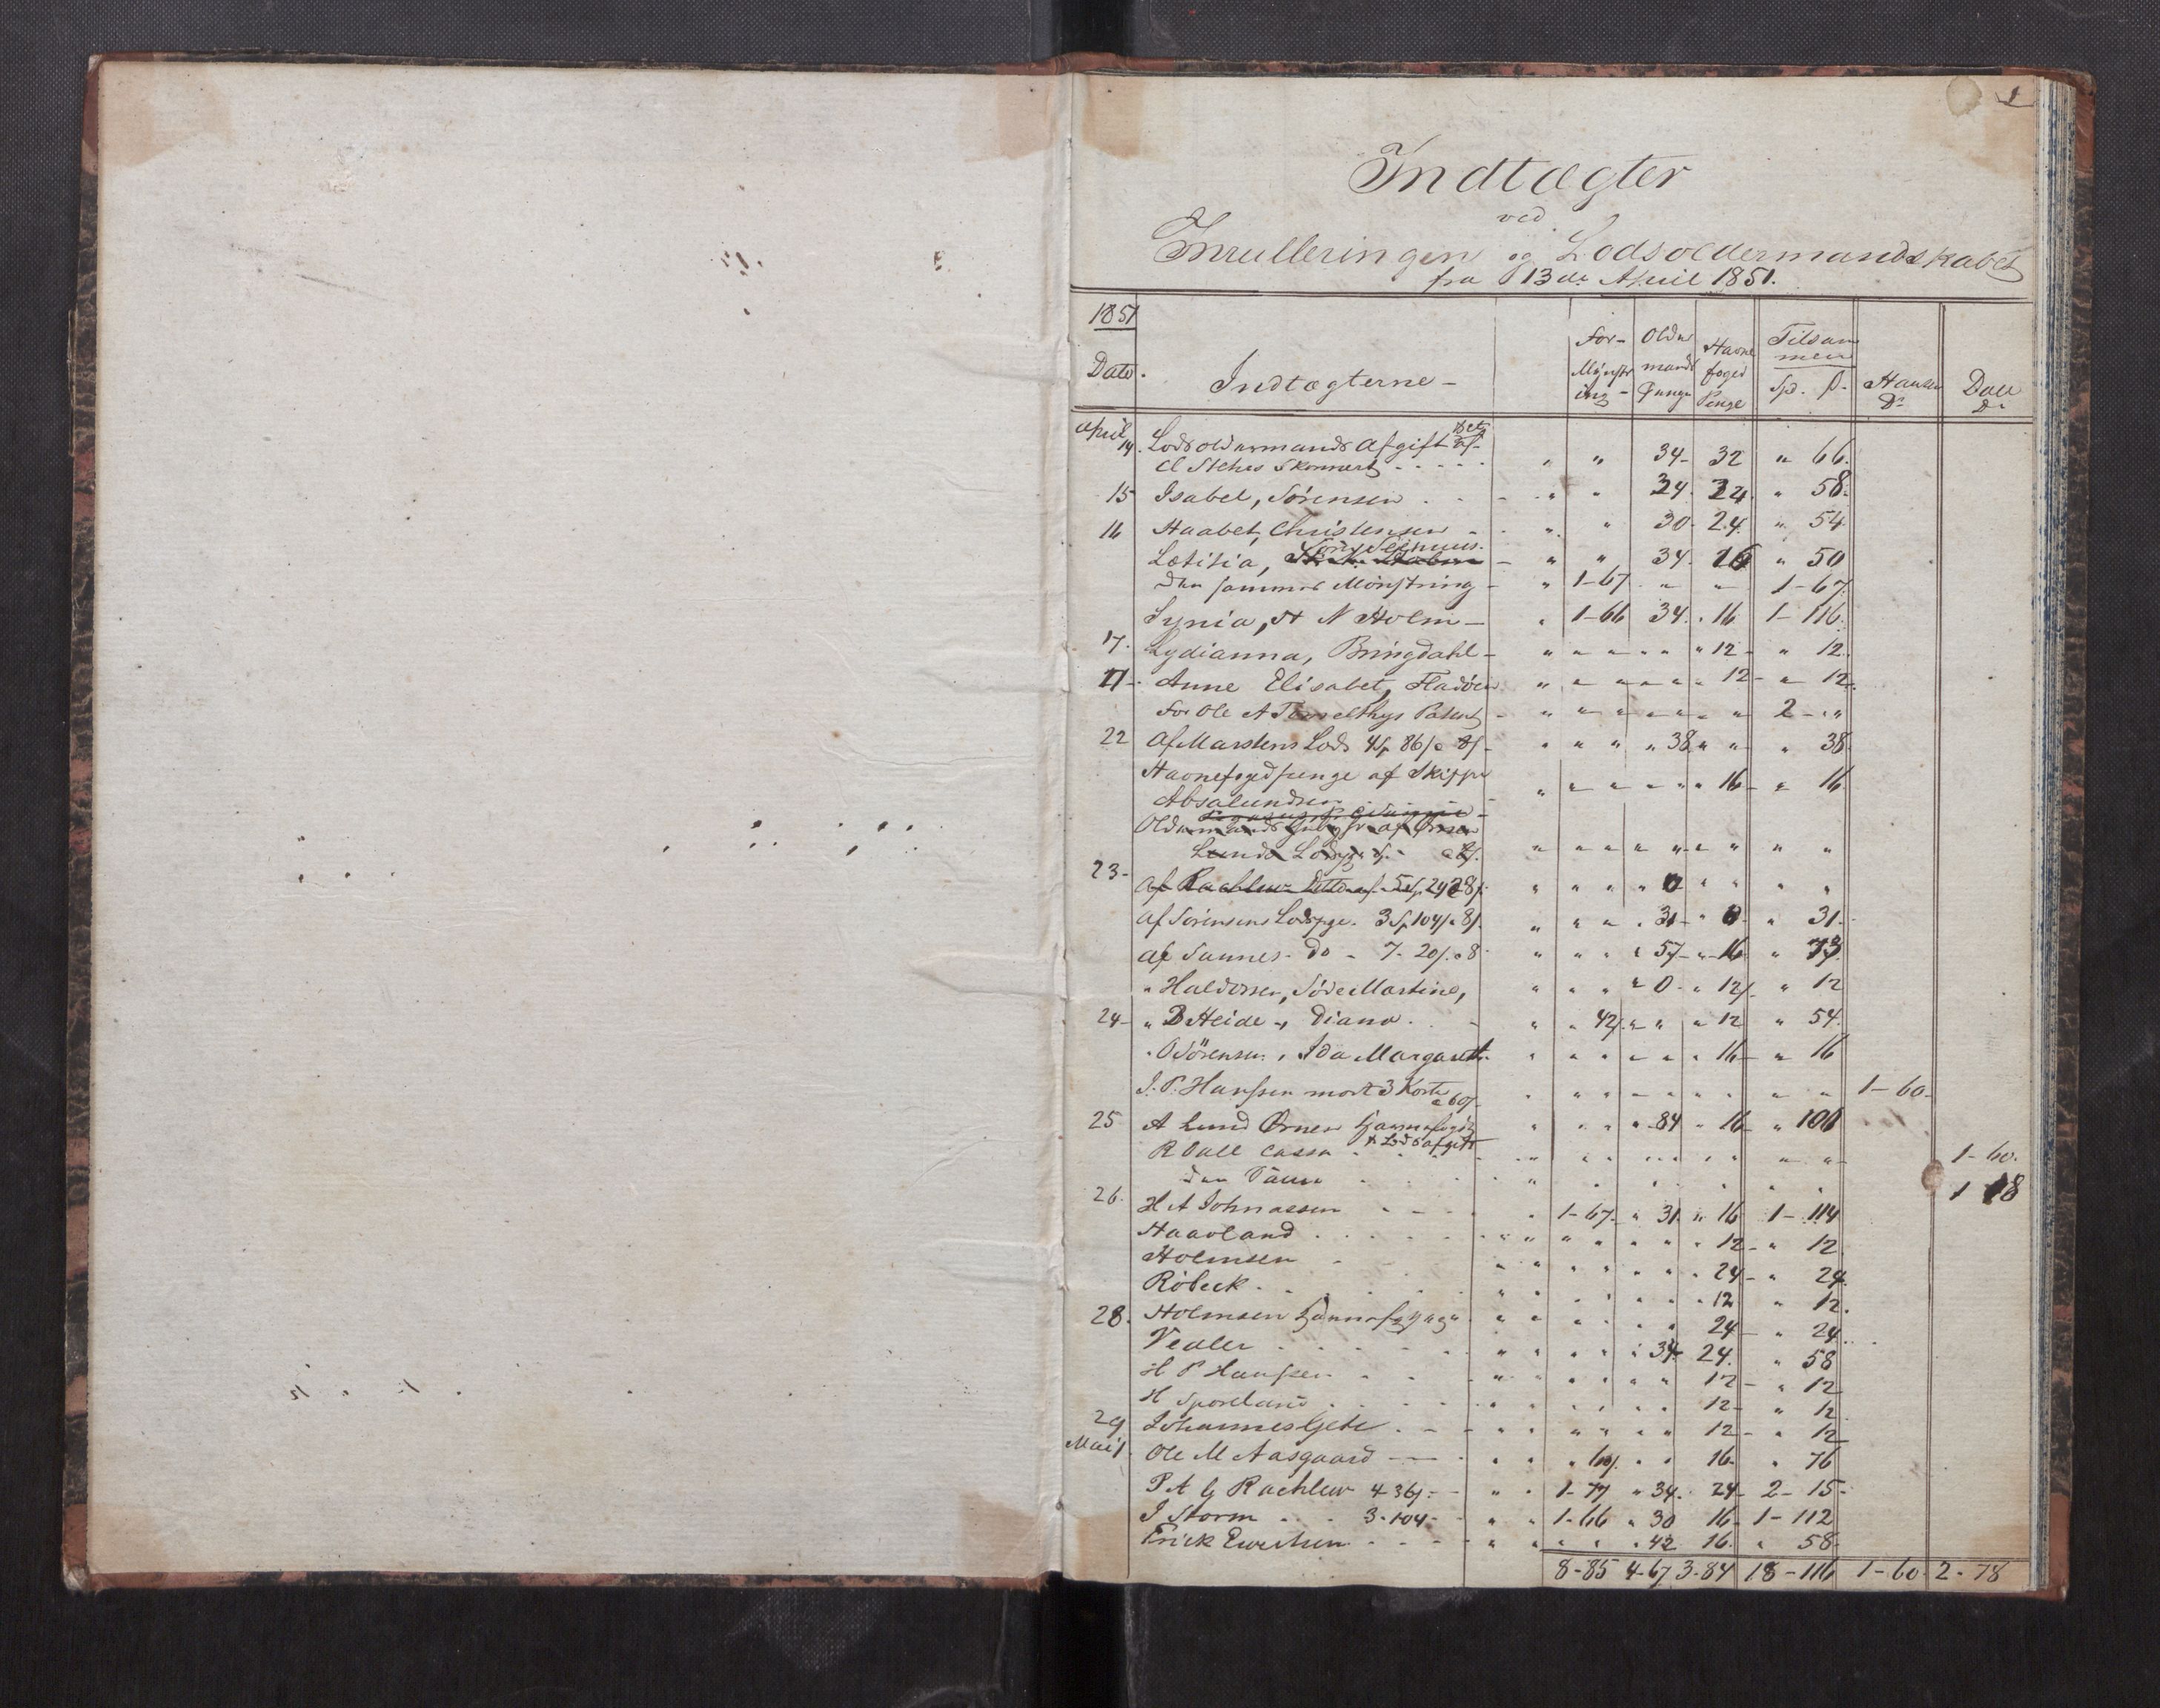 1
Indtægter
ved
Inrulleringen og Lodsoldermandskabet
fra 13de April 1851.
1851
Dato. Indtægterne - For-Mynstring- Oldermands Penge Havnefoged Penge Tilsammen Sp. ß. Hansen Dr Dall Dr
April 14. Lodsoldermands Afgift
Skonnert - - - - - " " 34- 32 " 66.
15 Isabel, Sørensen . - - " " 34. 24. " 58.
16 Haabet, Christensen - " " 30- 24. " 54.
Lætitia, - " " 34. 16 " 50
den sammes Mønstring - " 1-67. " " 1-67.
Synia, H N Holm - " 1-66 34. " 16 1-116.
17. Lydianna, Bringdahl - " " " " " " 12- " 12.
21- Anne Elisabet, " " " " " " 12- " 12.
for Ole A Patent - " " " " " " " 2-""
22 Af Marstens Lods 4Sp 86ß a 8ß - " " " " 38 " " " 38
Havnefogedpenge af Skipper
Absalundsen - " " " " " " 16- " 16
Lunds " " " " " " " "
23- af Rachlew 5Sp 24 a 8ß. " " " " 0 " " " "
af Sørensens Lodspge. 3Sp 104ß a 8ß. " " " " 31- " 0 " 31.
af Sannes- do - 7- 20ß. a 8 " " " " 57- " 16 " 73.
" Haldorsen, Martine, " " " " 0- " 12ß. " 12
24- " B Heide -, Diana . . - " " 42ß. " " " 12 " 54.
" O Sørensen, Ida Margareth. " " " " " " 16- " 16
J. P. Hanssen modt 3 Korte a 60ß- " " " " " " " " 1-60-
25 A Lund Ørnen Havnefogd & Lodsafgift " " " " 84 " 16- " 100
R Dall Cassa . . . . " " " " " " " " 1-60.
den Samme . . . " 1 18
26. H A Johnassen - - - - " 1-67- " 31. " 16 1-114
Haavland . . . . . . " " " " " " 12- " 12.
Holmsen - " " " " " " 24- " 24.
Röbeck . . . . " " " " " " 12 " 12.
28. Holmsen " " " " " 24- " 24.
Vedler . . . . . . " " " " " 34- 24. " 58
H P Hanssen . . . " " " " " " 12- " 12
H . . . . . " " " " " 12- " 12
29 Johannes Gjete . - - " " " " " " 12- " 12
Mai 1. Ole M Aasgaard - - - " " " 60ß. " " 16- " 76
P A G Rachlew 4 36ß - - " " 1-77 " 34. 24- 2-15-
J Storm . . . 3-104- " " 1-66 " 30 16- 1-112
Erick - - - - " " " " " 42 16. " 58.
8-85 4-67 3-84 18-116 1-60. 2-78